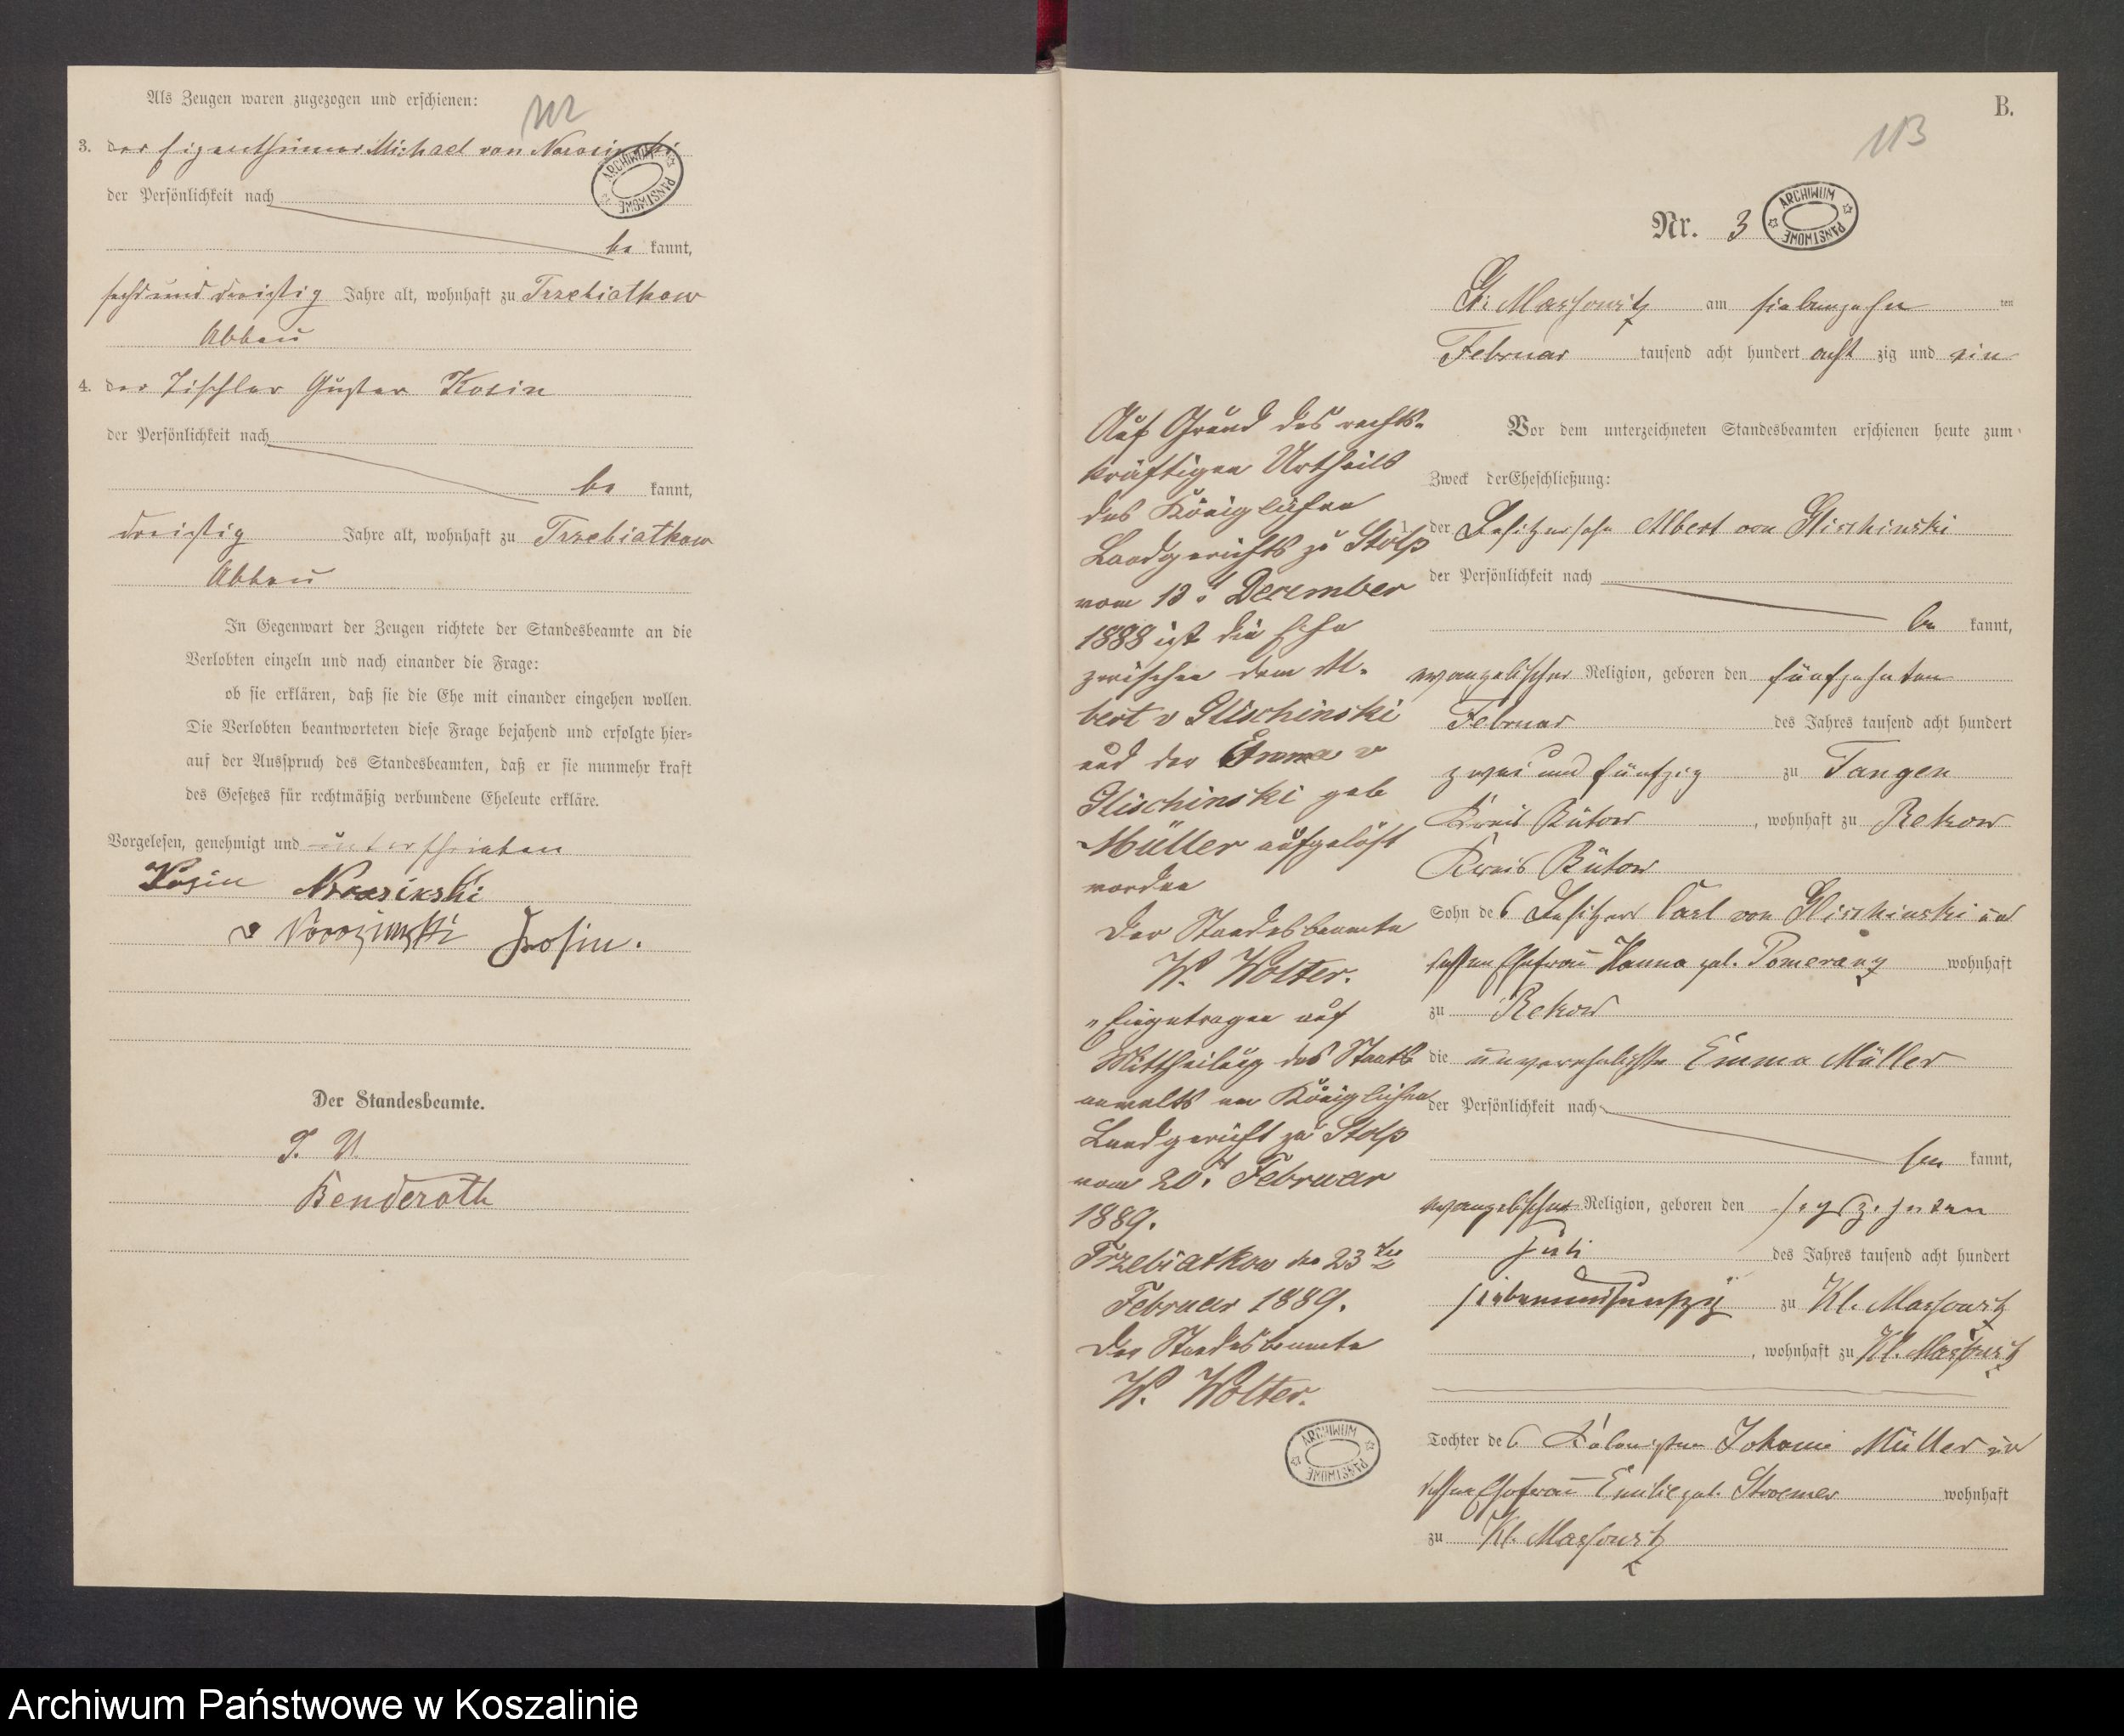 112
Als Zeugen waren zugezogen und erschienen:
3. der Eigenthümer Michael von
der Persönlichkeit nach
be kannt,
sechs und dreißig Jahre alt, wohnhaft zu Trzebiatkow
Abbau
4. der Tischler Gustav Kosin
der Persönlichkeit nach
be kannt,
dreißig Jahre alt, wohnhaft zu Trzebiatkow
Abbau
In Gegenwart der Zeugen richtete der Standesbeamte an die
Verlobten einzeln und nach einander die Frage:
ob sie erklären, daß sie die Ehe mit einander eingehen wollen.
Die Verlobten beantworteten diese Frage bejahend und erfolgte hier-
auf der Ausspruch des Standesbeamten, daß er sie nunmehr kraft
des Gesetzes für rechtmäßig verbundene Eheleute erkläre.
Vorgelesen, genehmigt und unterschrieben
Kosin
v
Der Standesbeamte.
Benderoth
B.
113
Nr. 3
ARCHIWUM PAŃSTWOWE
Gr. Massowitz am siebenzehn ten
Februar tausend acht hundert acht zig und ein
Vor dem unterzeichneten Standesbeamten erschienen heute zum
Zweck der Eheschließung:
1. der Besitzersohn Albert von Glischinski
der Persönlichkeit nach
be kannt,
evangelischer Religion, geboren den fünfzehnten
Februar des Jahres tausend acht hundert
zwei und fünfzig zu Tangen
Kreis Bütow, wohnhaft zu Rekow
Kreis Bütow
Sohn des Besitzers Carl von Glischinski und
dessen Ehefrau Hanna geb. Pomeranz wohnhaft
zu Rekow
die unverehelichte Emma Müller
der Persönlichkeit nach
be kannt,
evangelischer Religion, geboren den sechszehnten
Juli des Jahres tausend acht hundert
siebenundfünfzig zu Kl. Massowitz
, wohnhaft zu Kl. Massowitz
Tochter des Kolonisten Johann Müller und
dessen Ehefrau Emilie geb. Stroemer wohnhaft
zu Kl. Massowitz
Auf Grund des rechts-
kräftigen Urtheils
des Königlichen
Landgerichts zu Stolp
vom 13. December
1888 ist die Ehe
zwischen dem Al-
bert v Glischinski
und der Emma v
Glischinski geb
Müller aufgelöst
worden
Der Standesbeamte
W. Wolter.
Eingetragen auf
Mittheilung des Staats
anwalts am Königlichen
Landgericht zu Stolp
vom 20. Februar
1889.
Trzebiatkow den 23ten
Februar 1889.
Der Standesbeamte
W. Wolter.
ARCHIWUM PAŃSTWOWE
Archiwum Państwowe w Koszalinie